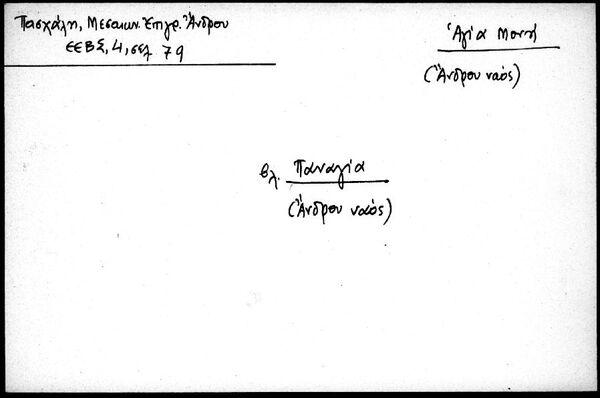 Πασχάλη, Μεσαιων. Ἐπιγρ. Ἄνδρου
ΕΕΒΣ, 4, σελ 79
Ἁγία Μονή
(Ἄνδρου ναός)
βλ. Παναγία
(Ἄνδρου ναός)